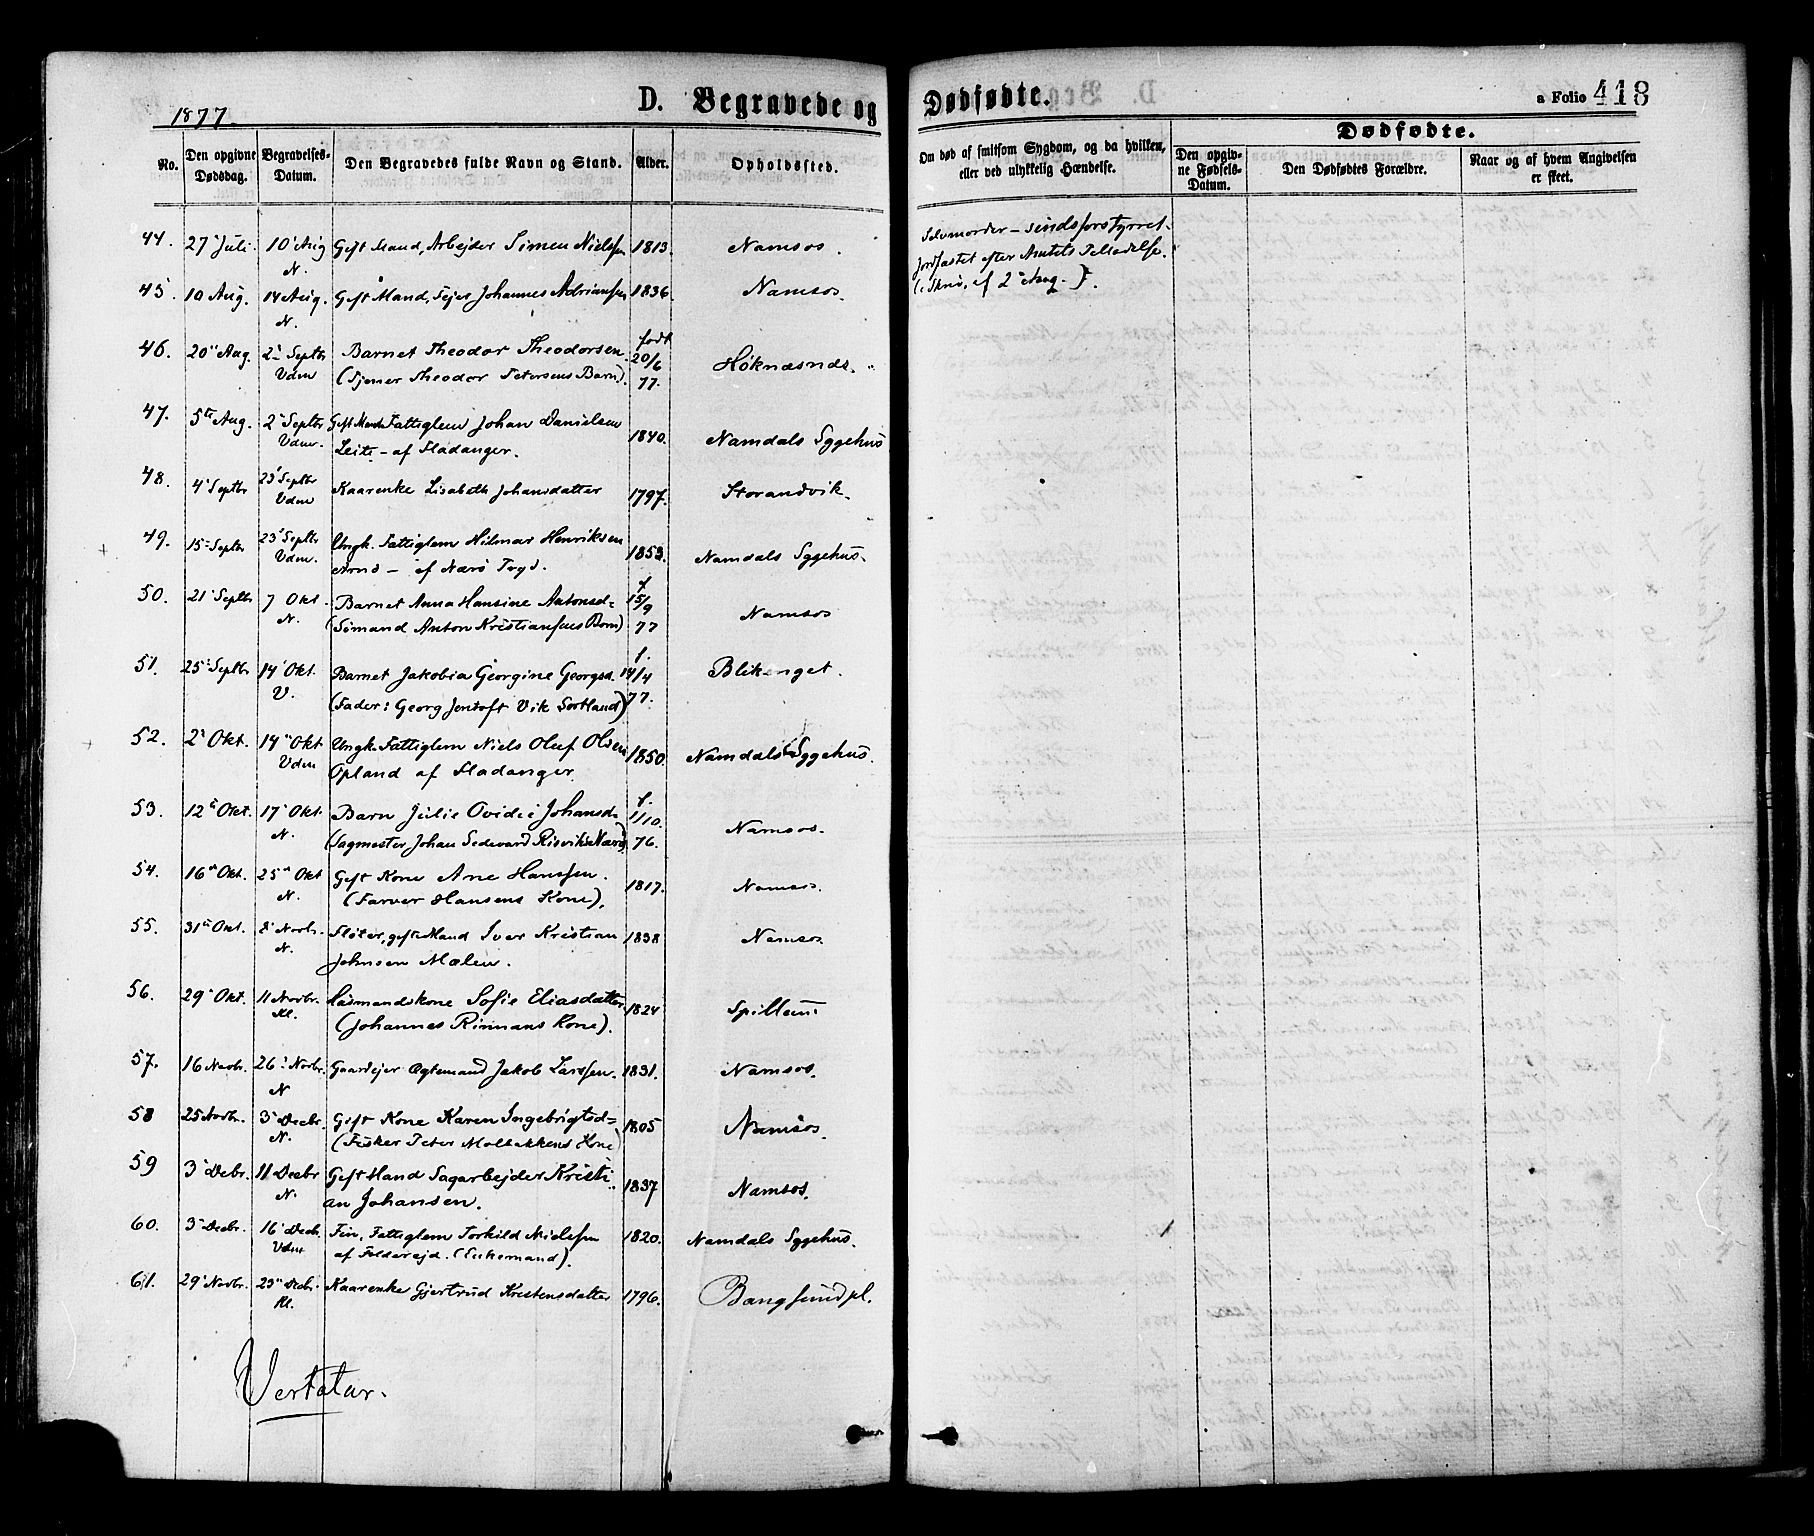 1877.
D. Begravede og Dødfødte.
a Folio 418
No.
Den opgivne Dødsdag.
Begravelses-Datum.
Den Begravedes fulde Navn og Stand.
Alder.
Opholdssted.
Om død af smitsom Sygdom, og da hvilken, eller ved ulykkelig Hændelse.
Dødfødte.
Den opgivne Fødsels-Datum.
Den Dødfødtes Forældre.
Naar og af hvem Angivelsen er skeet.
44. 27' Juli. 10' Aug N. Gift Mand, Arbejder Simen Nielsen 1813. Namsos.
Selvmorder – sindsforstyrret.
Jordfæstet efter Amtets Tilladelse.
45. 10 Aug. 14 Aug. N. Gift Mand, Fejer Johannes Adriansen 1836. Namsos.
46. 20" Aug. 2" Septbr Vdm Barnet Theodor Theodorsen. født 20/6 77. Høknæsnds.
(Tjener Theodor Petersens Barn).
47. 5te Aug. 2" Septbr Vdm. Gift Mand Fattiglem Johan Danielsen 1840. Namdals Sygehus
Leite – af Fladanger.
48. 4' Septbr 23' Septbr Vdm Kaarenke Lisabeth Johansdatter 1797. Storandvik.
49. 15" Septbr 23' Septbr Vdm. Ungk. Fattiglem Hilmar Henriksen 1853. Namdals Sygehus.
Arnd – af Nærø Pgd.
50. 21' Septbr 7 Okt. N. Barnet Anna Hansine Antonsd= f. 15/9 77 Namsos
(Sømand Anton Kristiansens Barn)
51. 25' Septbr 14' Okt. V. Barnet Jakobia Georgine Georgsd. f. 14/4 77. Blikenget.
(Fader: Georg Jentoft Vik Sortland)
52. 2' Okt. 14" Okt Vdm Ungk. Fattiglem Niels Oluf Olsen 1850. Namdals Sygehus.
Opland af Fladanger.
53. 12" Okt. 17' Okt. N. Barn Julie Ovidie Johansd= f. 1/10. 76. Namsos.
(Sagmester Johan Sedevard Risvik Nærø)
54. 16" Okt. 25" Okt N. Gift Kone Ane Hanssen. 1817. Namsos.
(Farver Hansens Kone),
55. 31" Okt. 8' Novbr. N. Fløter, gift Mand Iver Kristian 1838 Namsos
Johnsen Mælen.
56. 29' Okt. 11 Novbr. Kl. Husmandskone Sofie Eliasdatter 1824 Spillum
(Johannes Rinnans Kone).
57. 16 Novbr. 26' Novbr. N Gaardejer Ægtemand Jakob Larssen. 1831. Namsos.
58 25 Novbr. 3' Decbr. N. Gift Kone Karen Ingebrigtsd= 1805 Namsos.
(Fisker Peter Molbakkens Kone)
59 3' Debr. 11 Decbr N. Gift Mand Sagarbejder Kristi- 1837 Namsos.
an Johansen.
60. 3' Decbr. 16' Decb. Vdm Fin, Fattiglem Torkild Nielsen 1820. Namdals Sygehus.
af Folderejd. (Enkemand).
61. 29' Novbr. 23" Decbr. Kl. Kaarenke Gjertrud Kristensdatter 1796. Bangsund pl.
Vertatur.